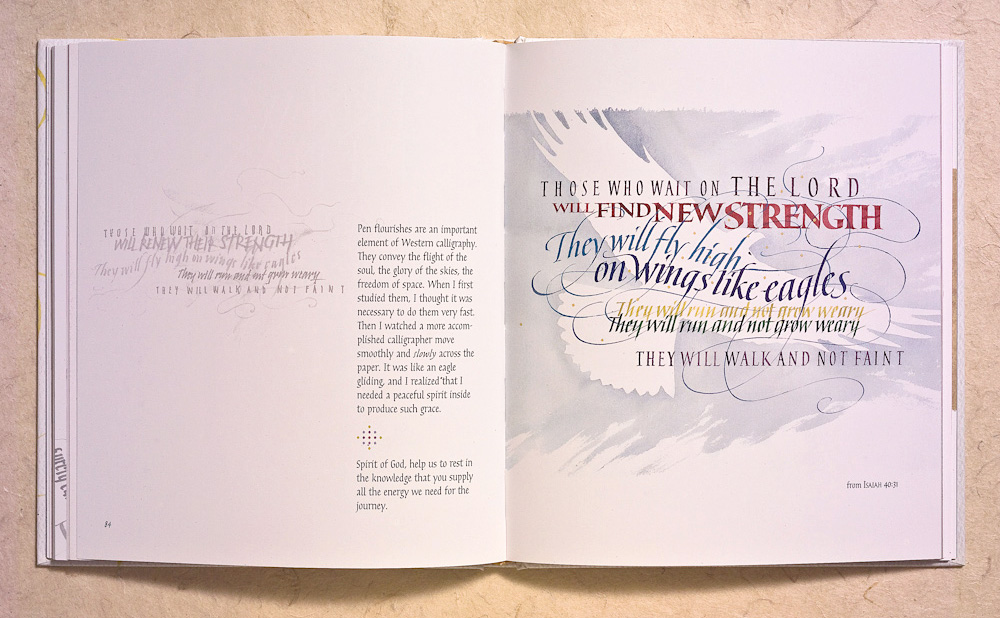 THOSE WHO WAIT ON THE LORD
WILL RENEW THEIR STRENGTH
They will fly high on wings like eagles
They will run and not grow weary
THEY WILL WALK AND NOT FAINT
Pen flourishes are an important
element of Western calligraphy.
They convey the flight of the
soul, the glory of the skies, the
freedom of space. When I first
studied them, I thought it was
necessary to do them very fast.
Then I watched a more accom-
plished calligrapher move
smoothly and slowly across the
paper. It was like an eagle
gliding, and I realized that I
needed a peaceful spirit inside
to produce such grace.
Spirit of God, help us to rest in
the knowledge that you supply
all the energy we need for the
journey.
84
THOSE WHO WAIT ON THE LORD
WILL FIND NEW STRENGTH
They will fly high
on wings like eagles
They will run and not grow weary
They will run and not grow weary
THEY WILL WALK AND NOT FAINT
from ISAIAH 40:31